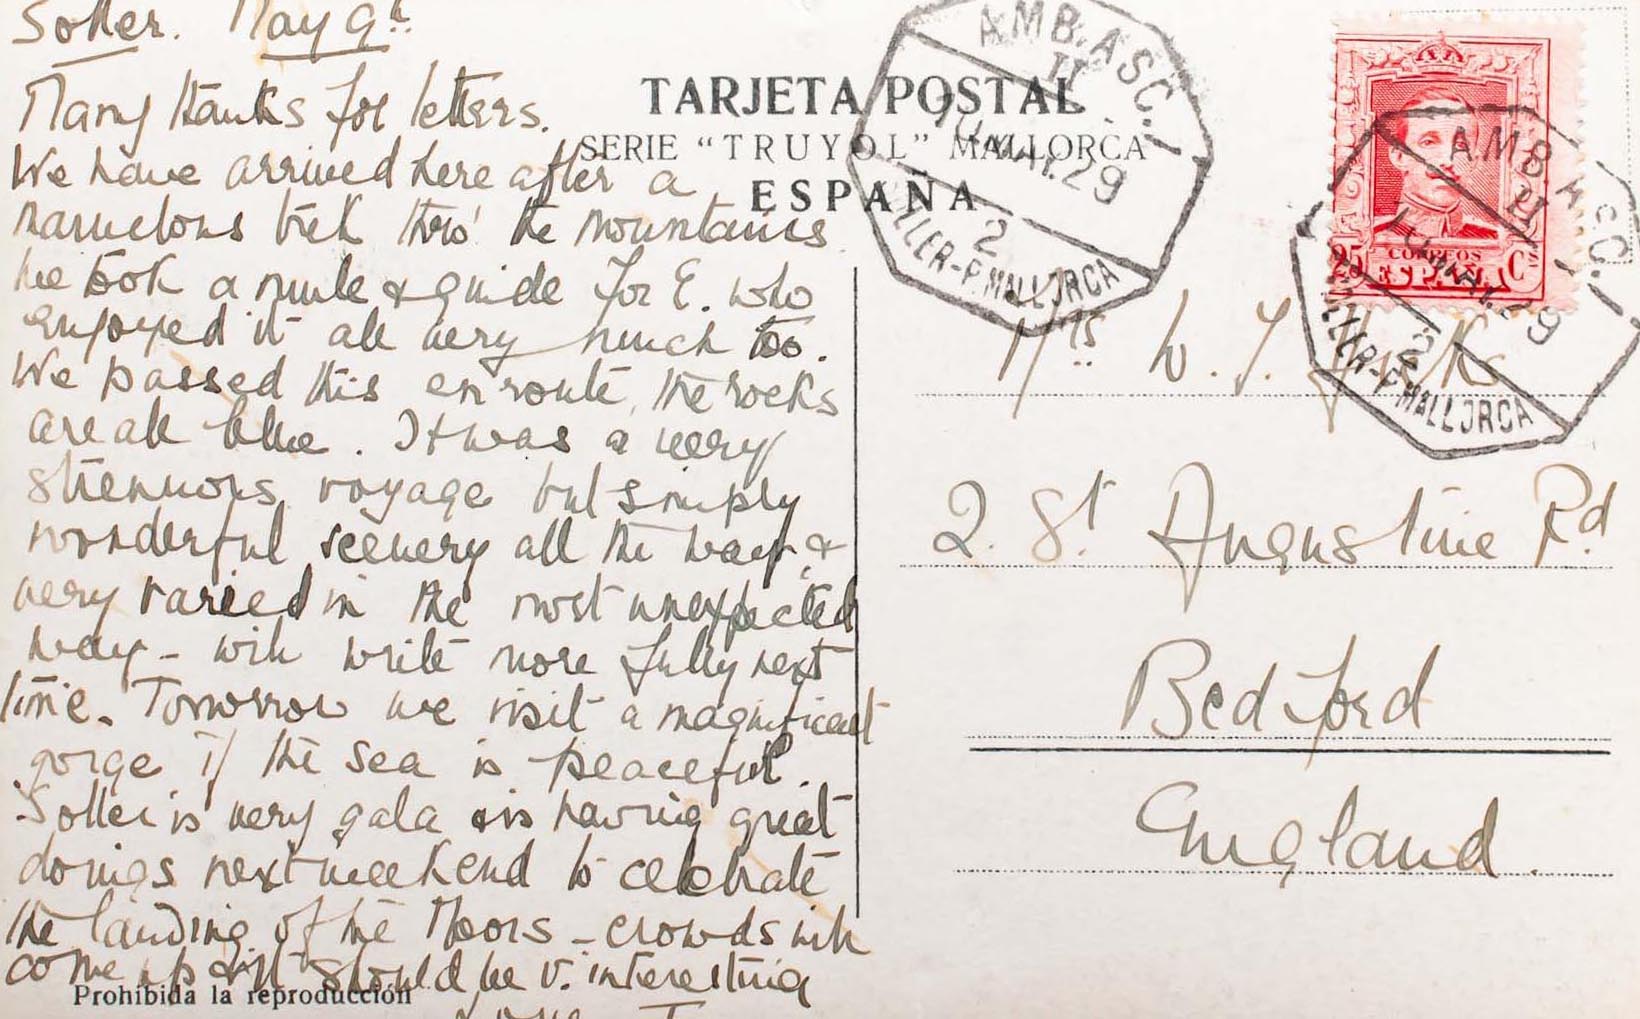 Soller. May 9th
Many thanks for letters.
We have arrived here after a
marvelous trek thro' the mountains
we took a mule & guide for E. who
enjoyed it all very much too.
We passed this en route, the rocks
are all blue. It was a very
strenuous voyage but simply
wonderful scenery all the way &
very varied in the most unexpected
way - will write more fully next
time. Tomorrow we visit a magnificent
gorge if the sea is peaceful.
Soller is very gala & is having great
doings next weekend to celebrate
the landing of the Moors - crowds will
come up & it should be v. interesting
Love
Prohibida la reproducción
TARJETA POSTAL
SERIE "TRUYOL" MALLORCA
ESPAÑA
AMB. ASC. 1
II
10 MAY. 29
2
LLER-P. MALLORCA
AMB ASC. 1
II
29
2
LLER-P. MALLORCA
25 CORREOS Cs
ESPAÑA
Mrs W. J.
2. St. Augustine Rd
Bedford
England.